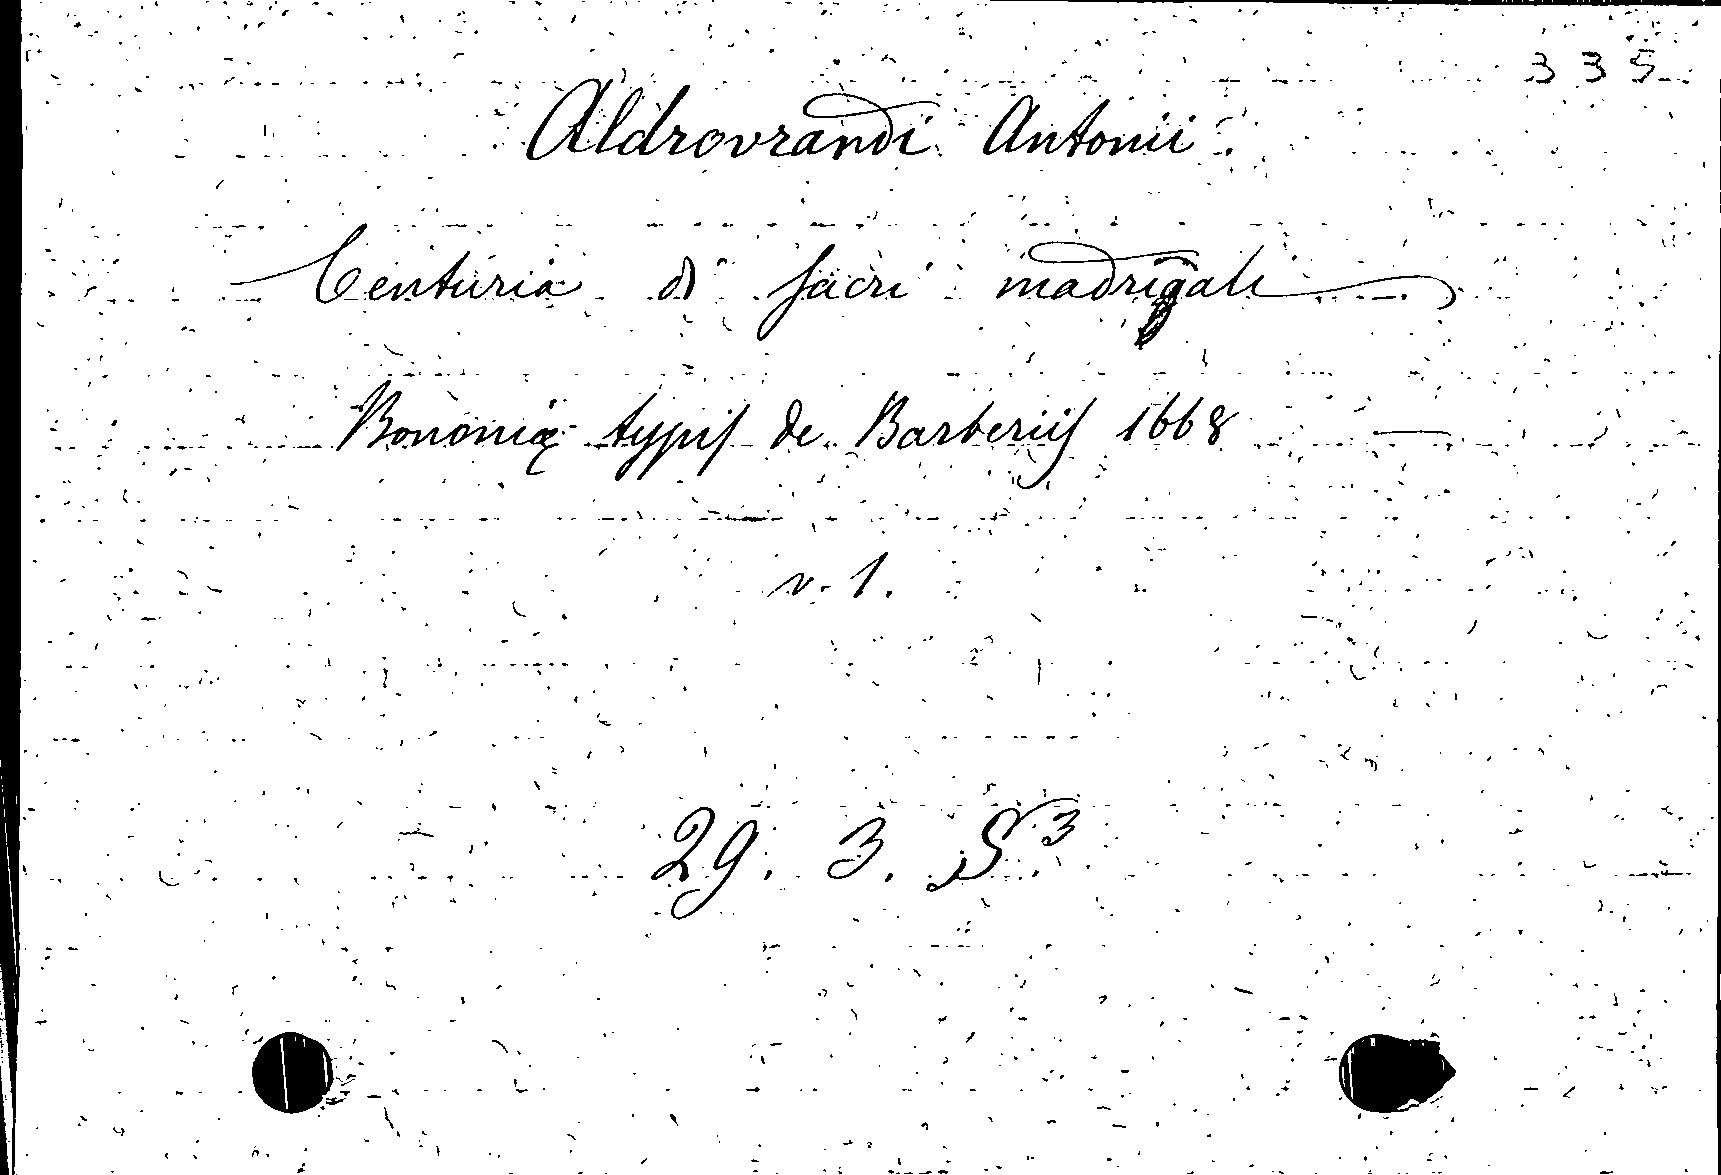 335
Aldrovrandi Antonii
Centuria di sacri madrigali
Bononiæ typis de Barberiis 1668
v. 1.
29. 3. S 3